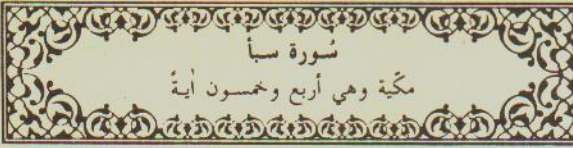 سُورة سبأ
مكّية وهي أربع وخمسون اٰيةً